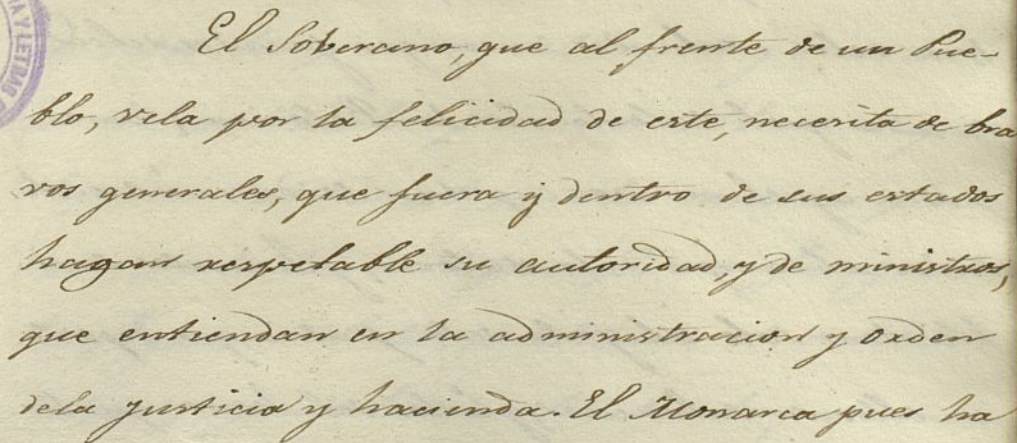 El Soberano, que al frente de un Pue-
blo, vela por la felicidad de este, necesita de bra
vos generales, que fuera y dentro de sus estados
hagan respetable su autoridad, y de ministros,
que entiendan en la administracion y orden
dela justicia y hacienda. El Monarca pues ha
Y LETRAS